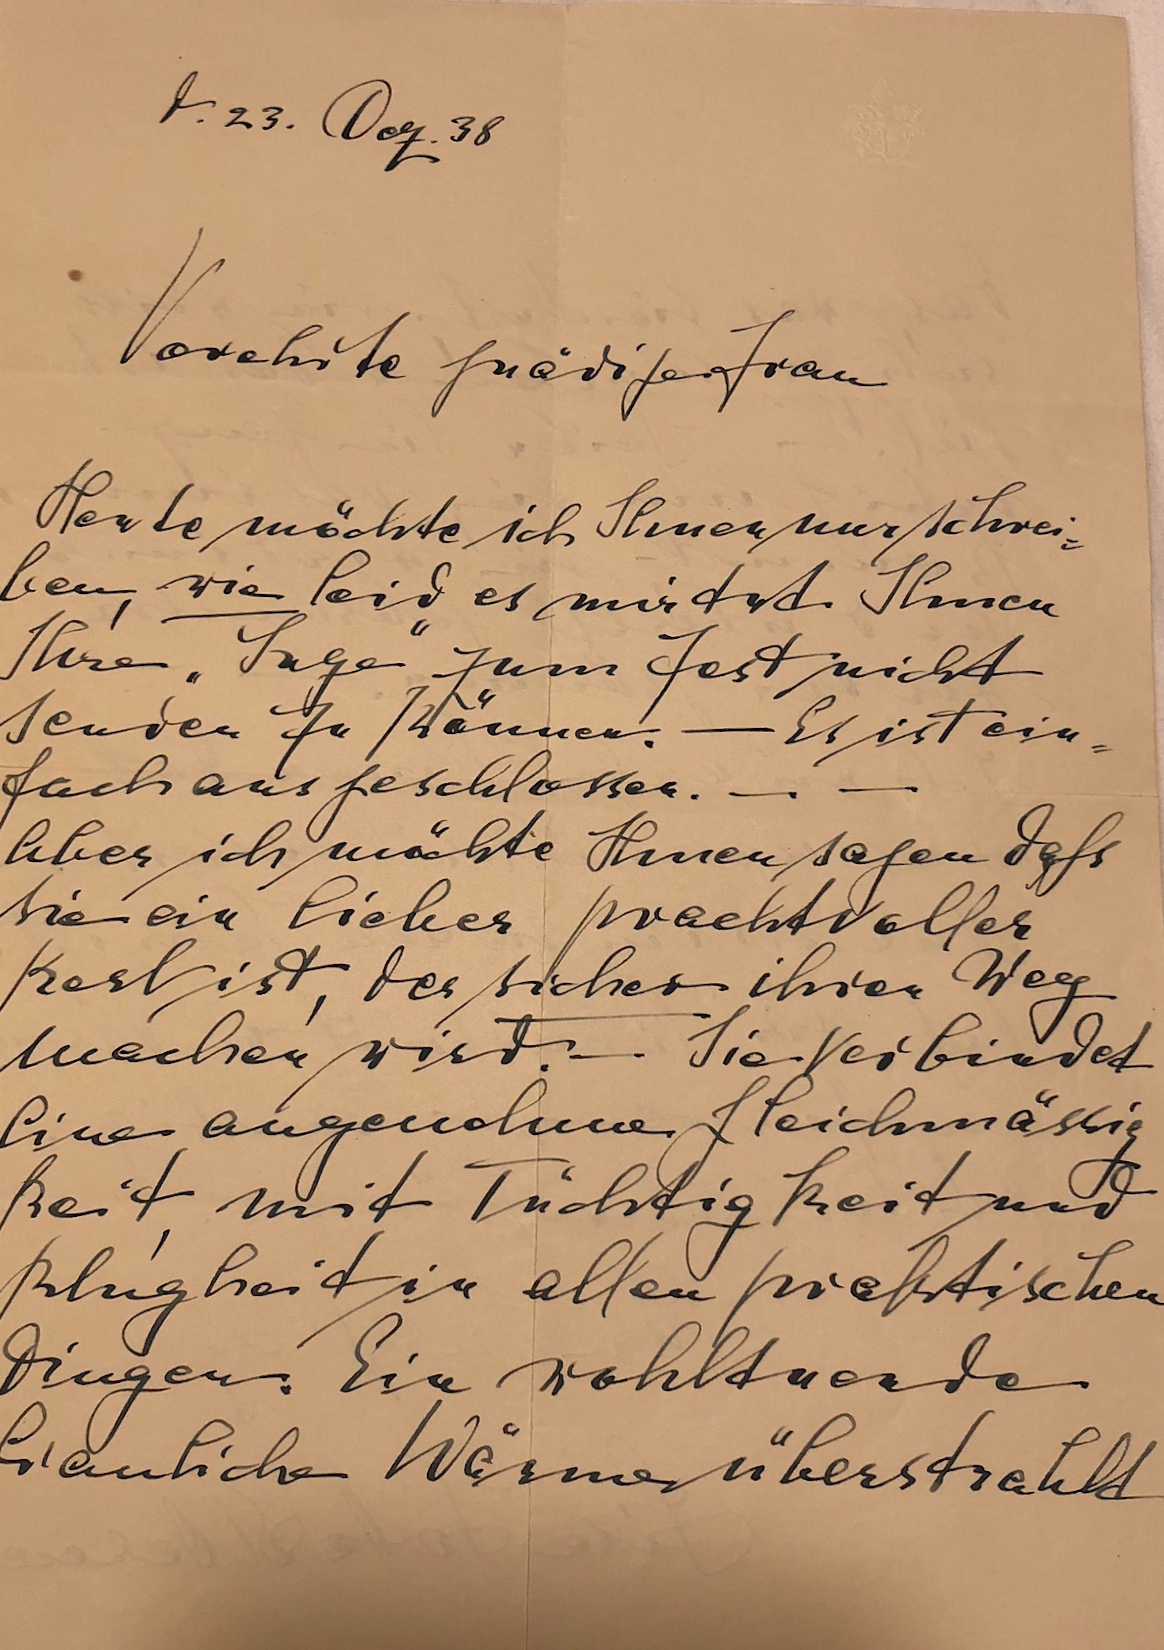 d. 23. Dez. 38
Verehrte gnädige Frau
Heute möchte ich Ihnen nur schrei=
ben, wie leid es mir tut Ihnen
Ihre „Inge“ zum Fest nicht
senden zu können. — Es ist ein=
fach ausgeschlossen. — —
Aber ich möchte Ihnen sagen daſs
sie ein lieber prachtvoller
Kerl ist, der sicher ihren Weg
machen wird. — Sie verbindet
eine angenehme Gleichmässig
keit, mit Tüchtigkeit und
Klugheit in allen praktischen
Dingen. Ein wohltuende
frauliche Wärme überstrahlt